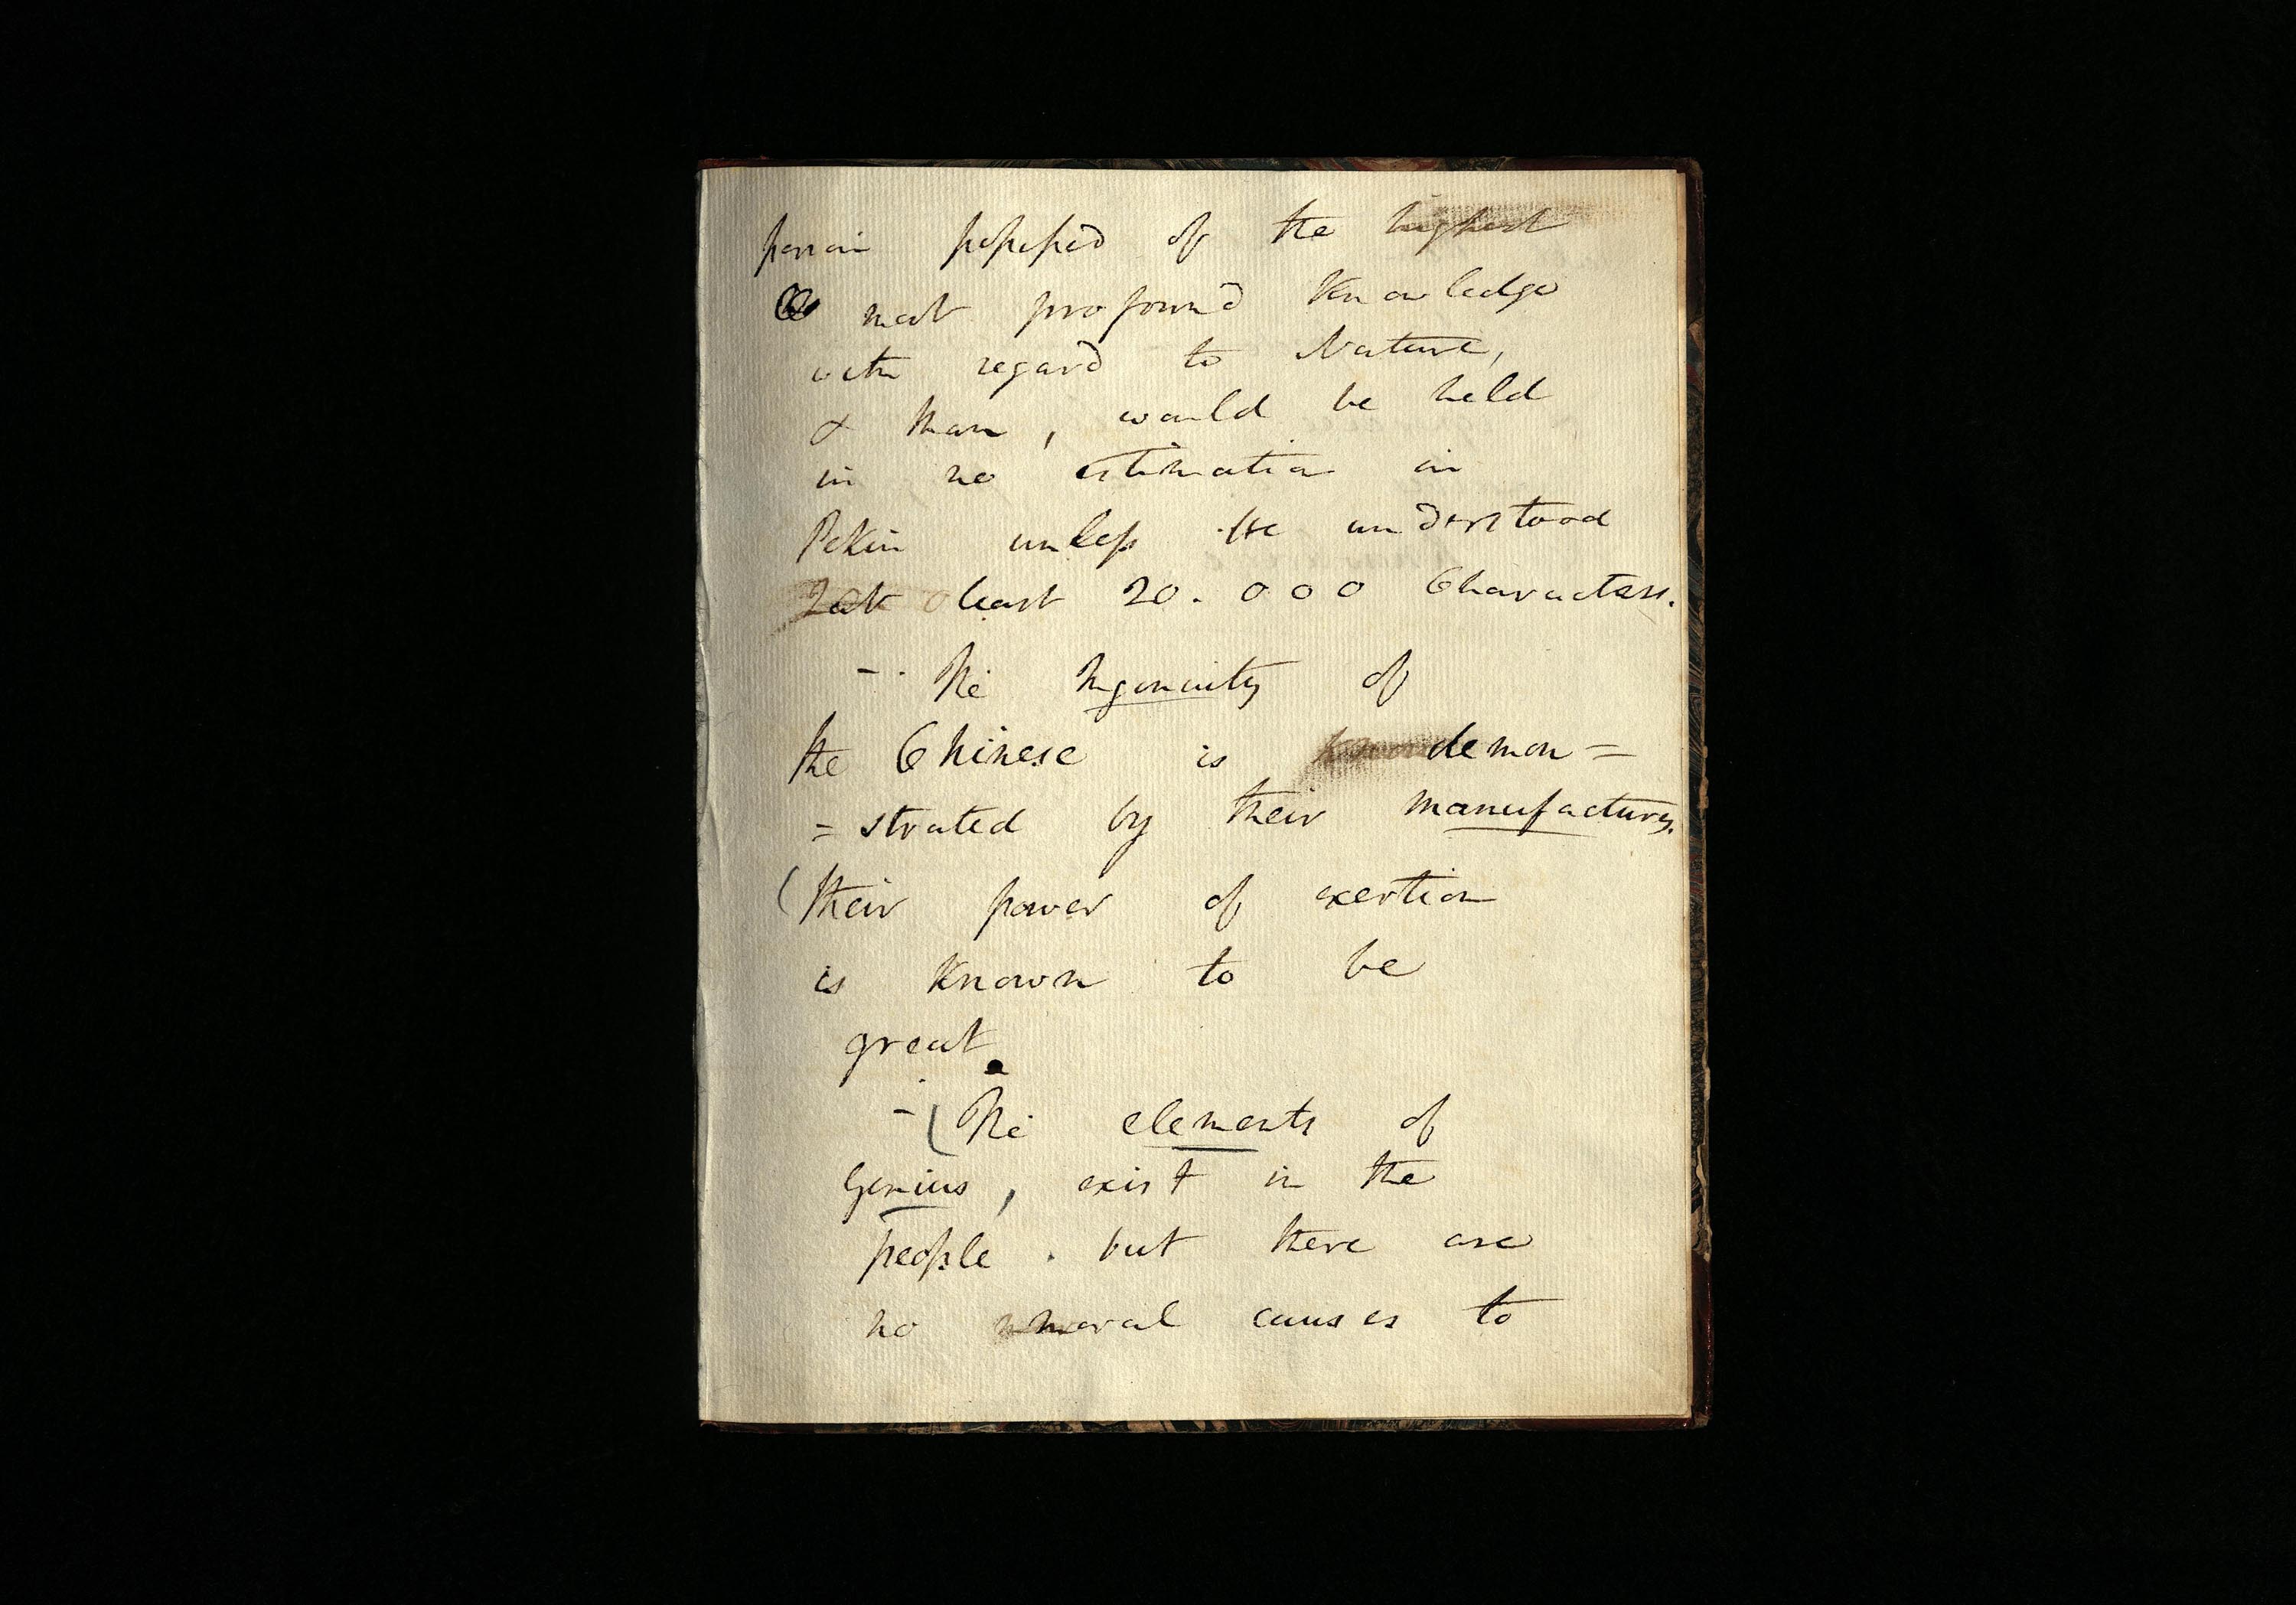 person possessed of the highest
most profound Knowledge
with regard to Nature,
& Man, would be held
in no estimation in
Pekin unless He understood
at least 20.000 Characters.
- The Ingenuity of
the Chinese is demon=
=strated by their manufactures.
(their power of exertion
is Known to be
great.
- (The elements of
Genius, exist in the
people. but there are
no moral causes to